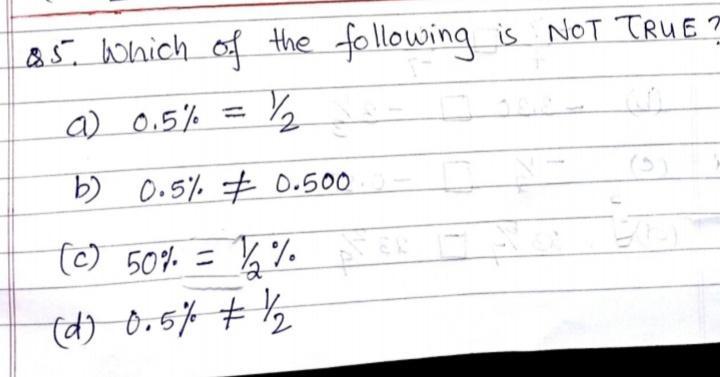 Q5. Which of the following is NOT TRUE?
a) 0.5% = 1/2
b) 0.5% ≠ 0.500
(c) 50% = 1/2 %
(d) 0.5% ≠ 1/2